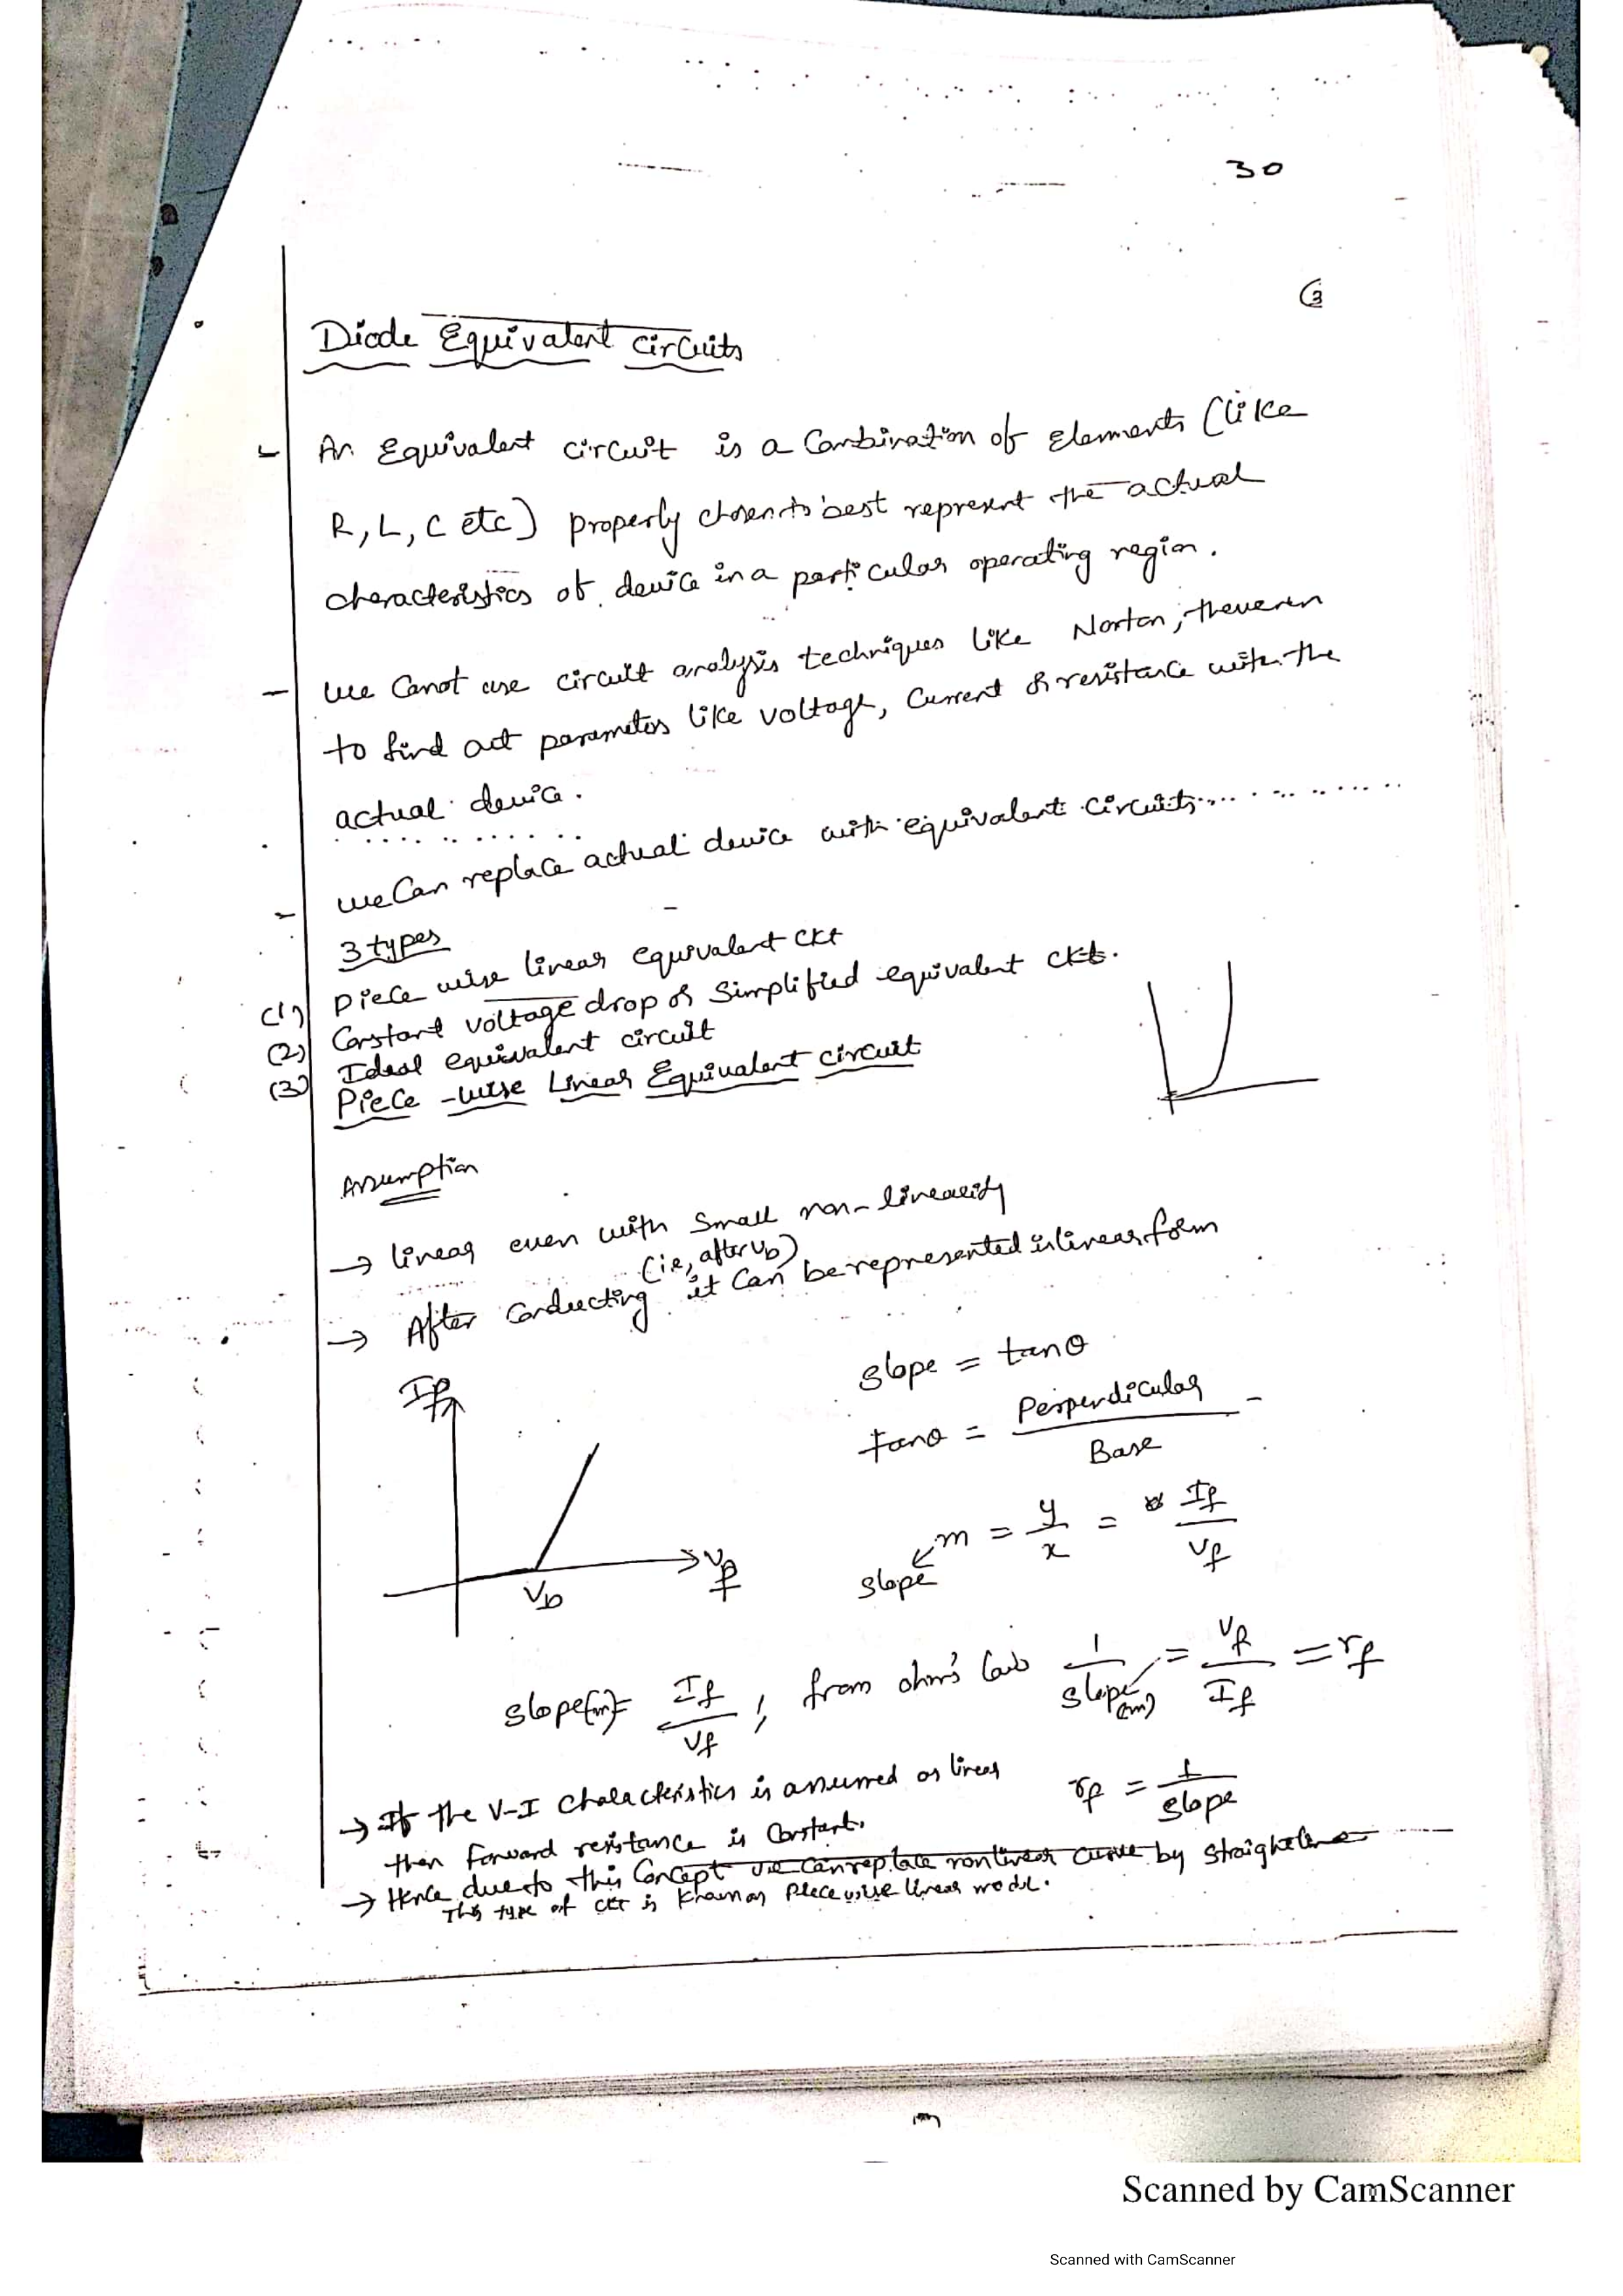 30
3
Diode Equivalent circuits
- An Equivalent circuit is a Combination of Elements (like
R, L, C etc) properly chosen to best represent the actual
characteristics of device in a particular operating region.
- we Canot use circuit analysis techniques like Norton, thevenin
to find out parameters like voltage, Current or resistance with the
actual device.
- we Can replace actual device with equivalent circuits
3 types
(1) Piece wise linear equivalent ckt
(2) Constant voltage drop or Simplified equivalent ckt.
(3) Ideal equivalent circuit
Piece -wise Linear Equivalent circuit
Assumption
→ linear even with Small non-linearity
(ie, after VD)
→ After Conducting it Can be represented in linear form
If
Vf
VD
slope = tanθ
tanθ = Perpendicular / Base
m = y/x = If/Vf
slope
slope(m) = If/Vf ; from ohm's law 1/slope(m) = Vf/If = rf
→ If the V-I characteristics is assumed as linear
then forward resistance is Constant.
rf = 1/slope
→ Hence due to this Concept we can replace non linear curve by straight line
This type of ckt is known as Piece wise linear model.
Scanned by CamScanner
Scanned with CamScanner